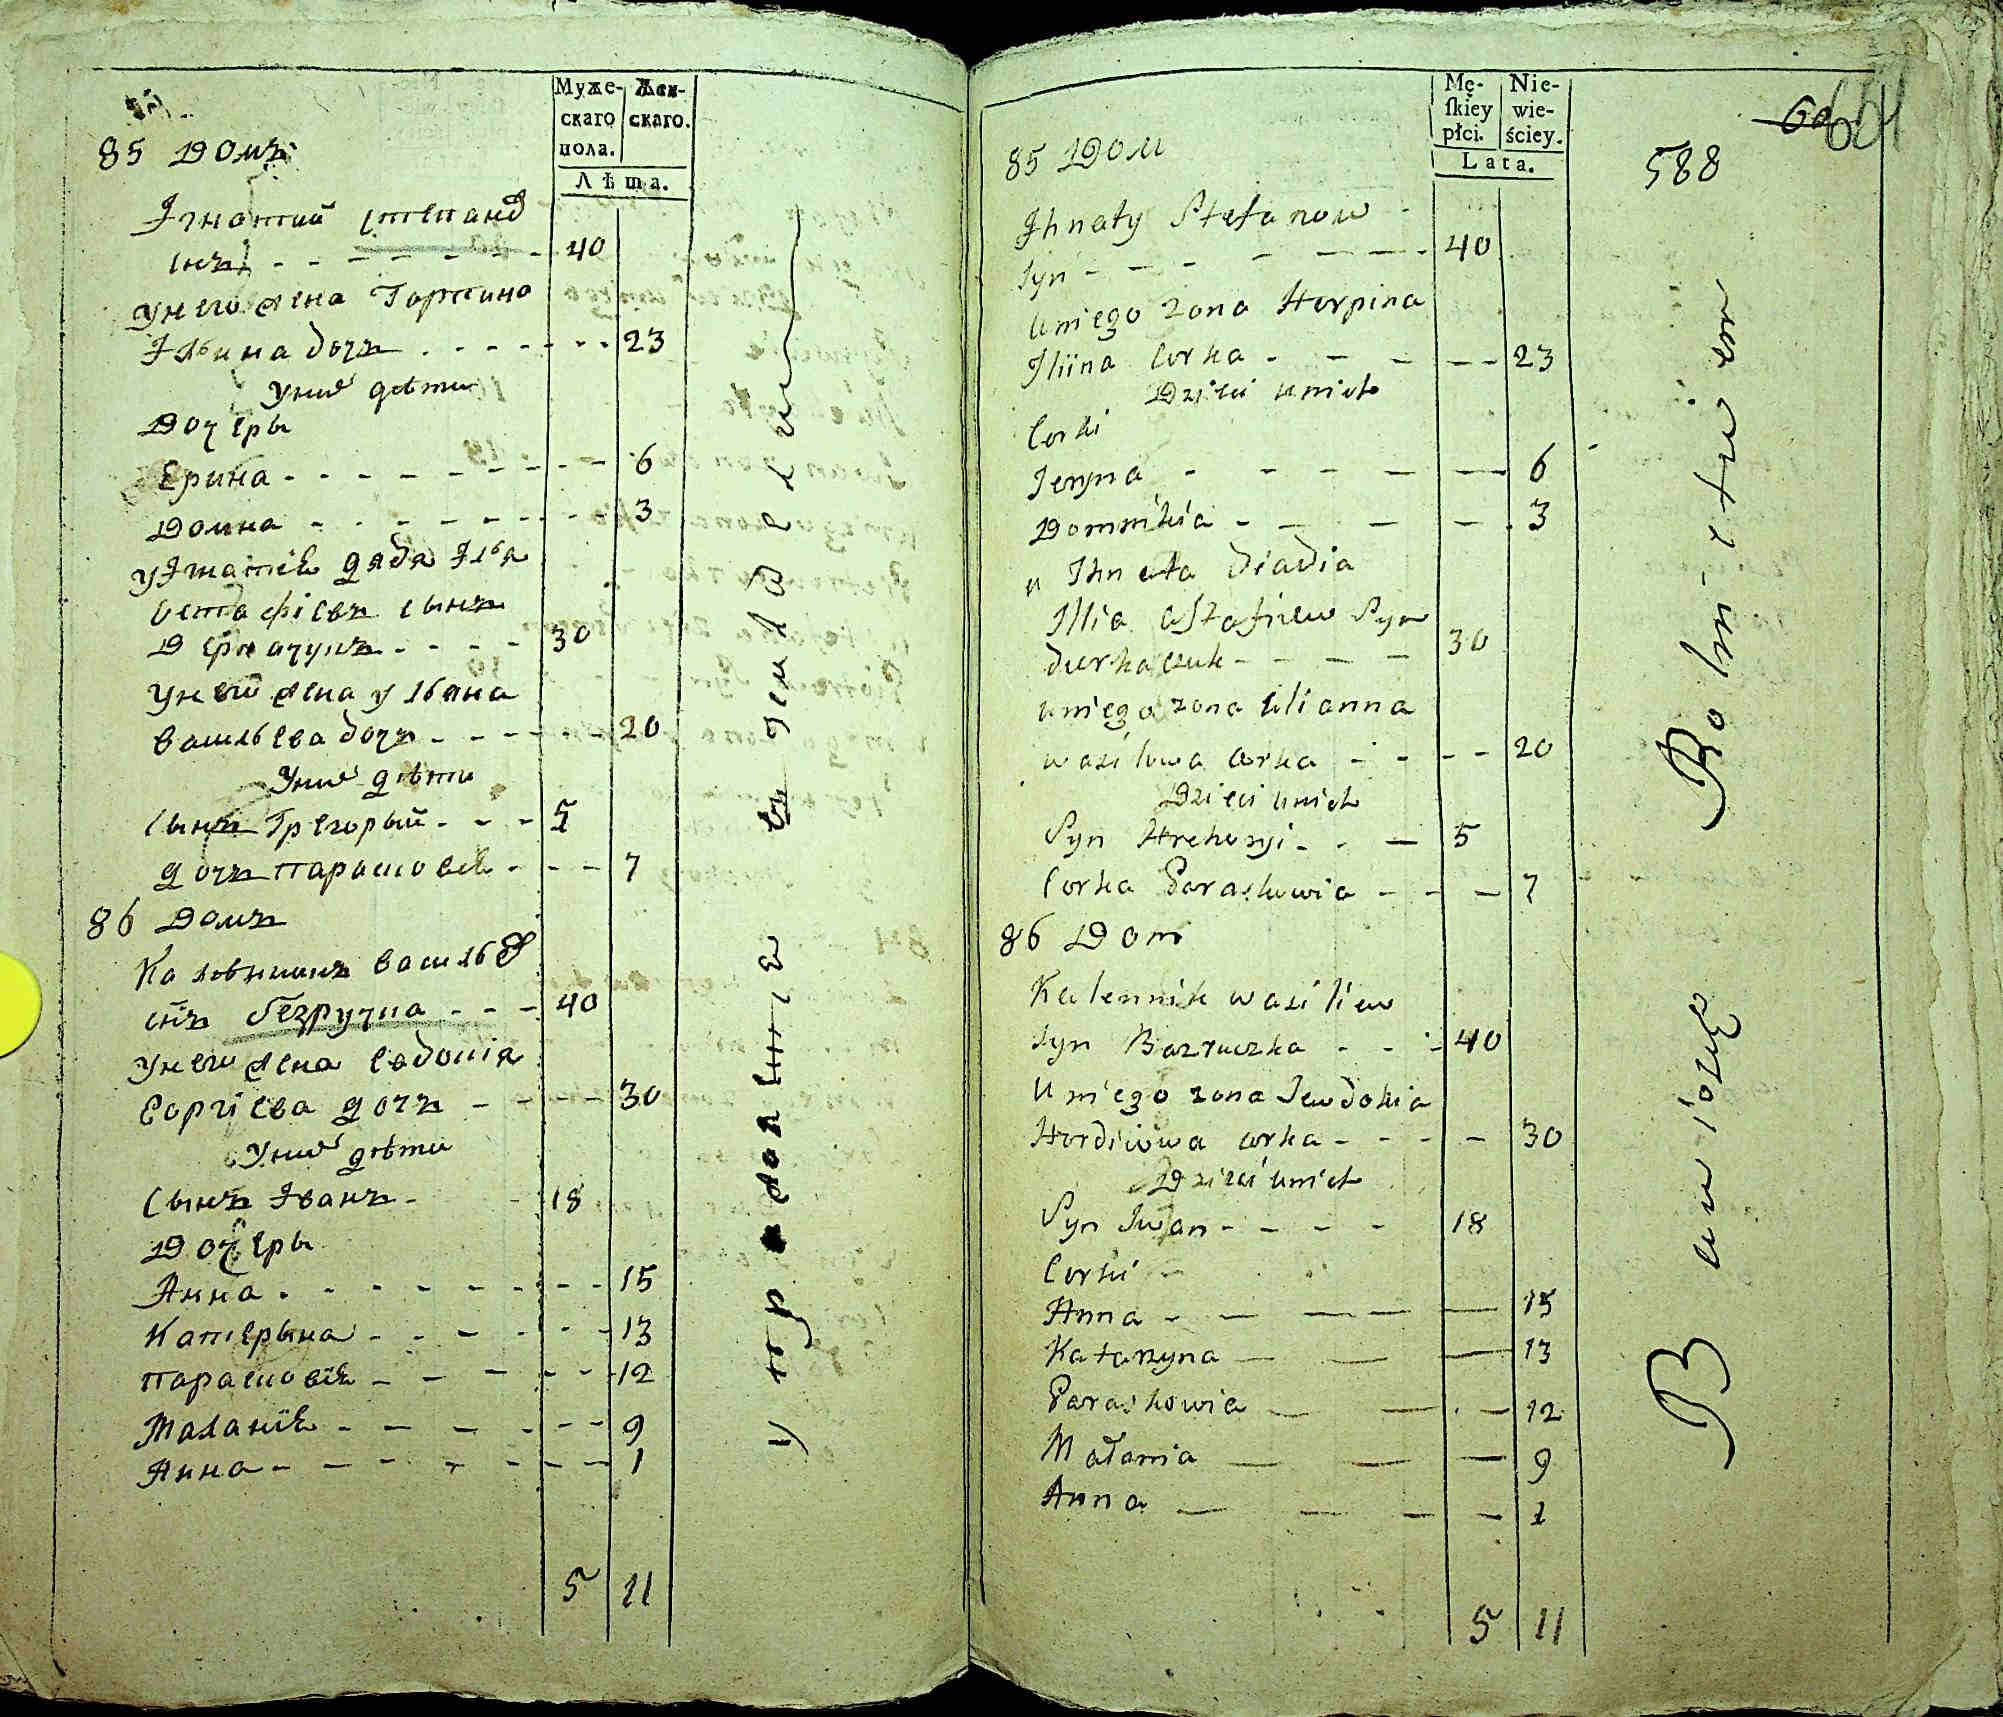 Муже-
скаго
пола.
Жен-
скаго.
Лѣта.
85 Домъ
Ігнатий Степанов
снъ 40
у него жена Горпина
Ільина дочъ 23
У них дѣти
Дочеры
Ерина 6
Домна 3
дядя Ілья
Остафіевъ сынъ
Деркачукъ 30
у него жена Ульяна
Васильева дочъ 20
У них дѣти
Сынъ Грегорый 5
дочъ Парасковія 7
86 Домъ
Васильев
снъ безручка 40
у него жена Евдокія
дочъ 30
У них дѣти
Сынъ Іванъ 18
Дочеры
Анна 15
Катерына 13
Парасковія 12
Маланія 9
Анна 1
5 11
Mę-
ſkiey
płci.
Nie-
wie-
ściey.
Lata.
604
588
85 Дом
Ihnaty Stefanow
syn 40
u niego zona Horpina
Iliina Corka 23
Dzieci u nich
Corki
Jeryna 6
Domnikia 3
u Ihnata diadia
Illia Astafiew Syn
derkaczuk 30
u niego zona Ulianna
wasilowa corka 20
Dzieci u nich
Syn Hrehoryi 5
Corka Paraskowia 7
86 Dom
Kalennik wasiliew
syn Bezruczka 40
U niego zona Jewdokia
Hordiiowa corka 30
Dzieci u nich
Syn Iwan 18
Corki
Anna 15
Katarzyna 13
Paraskowia 12
Małania 9
Anna 1
5 11